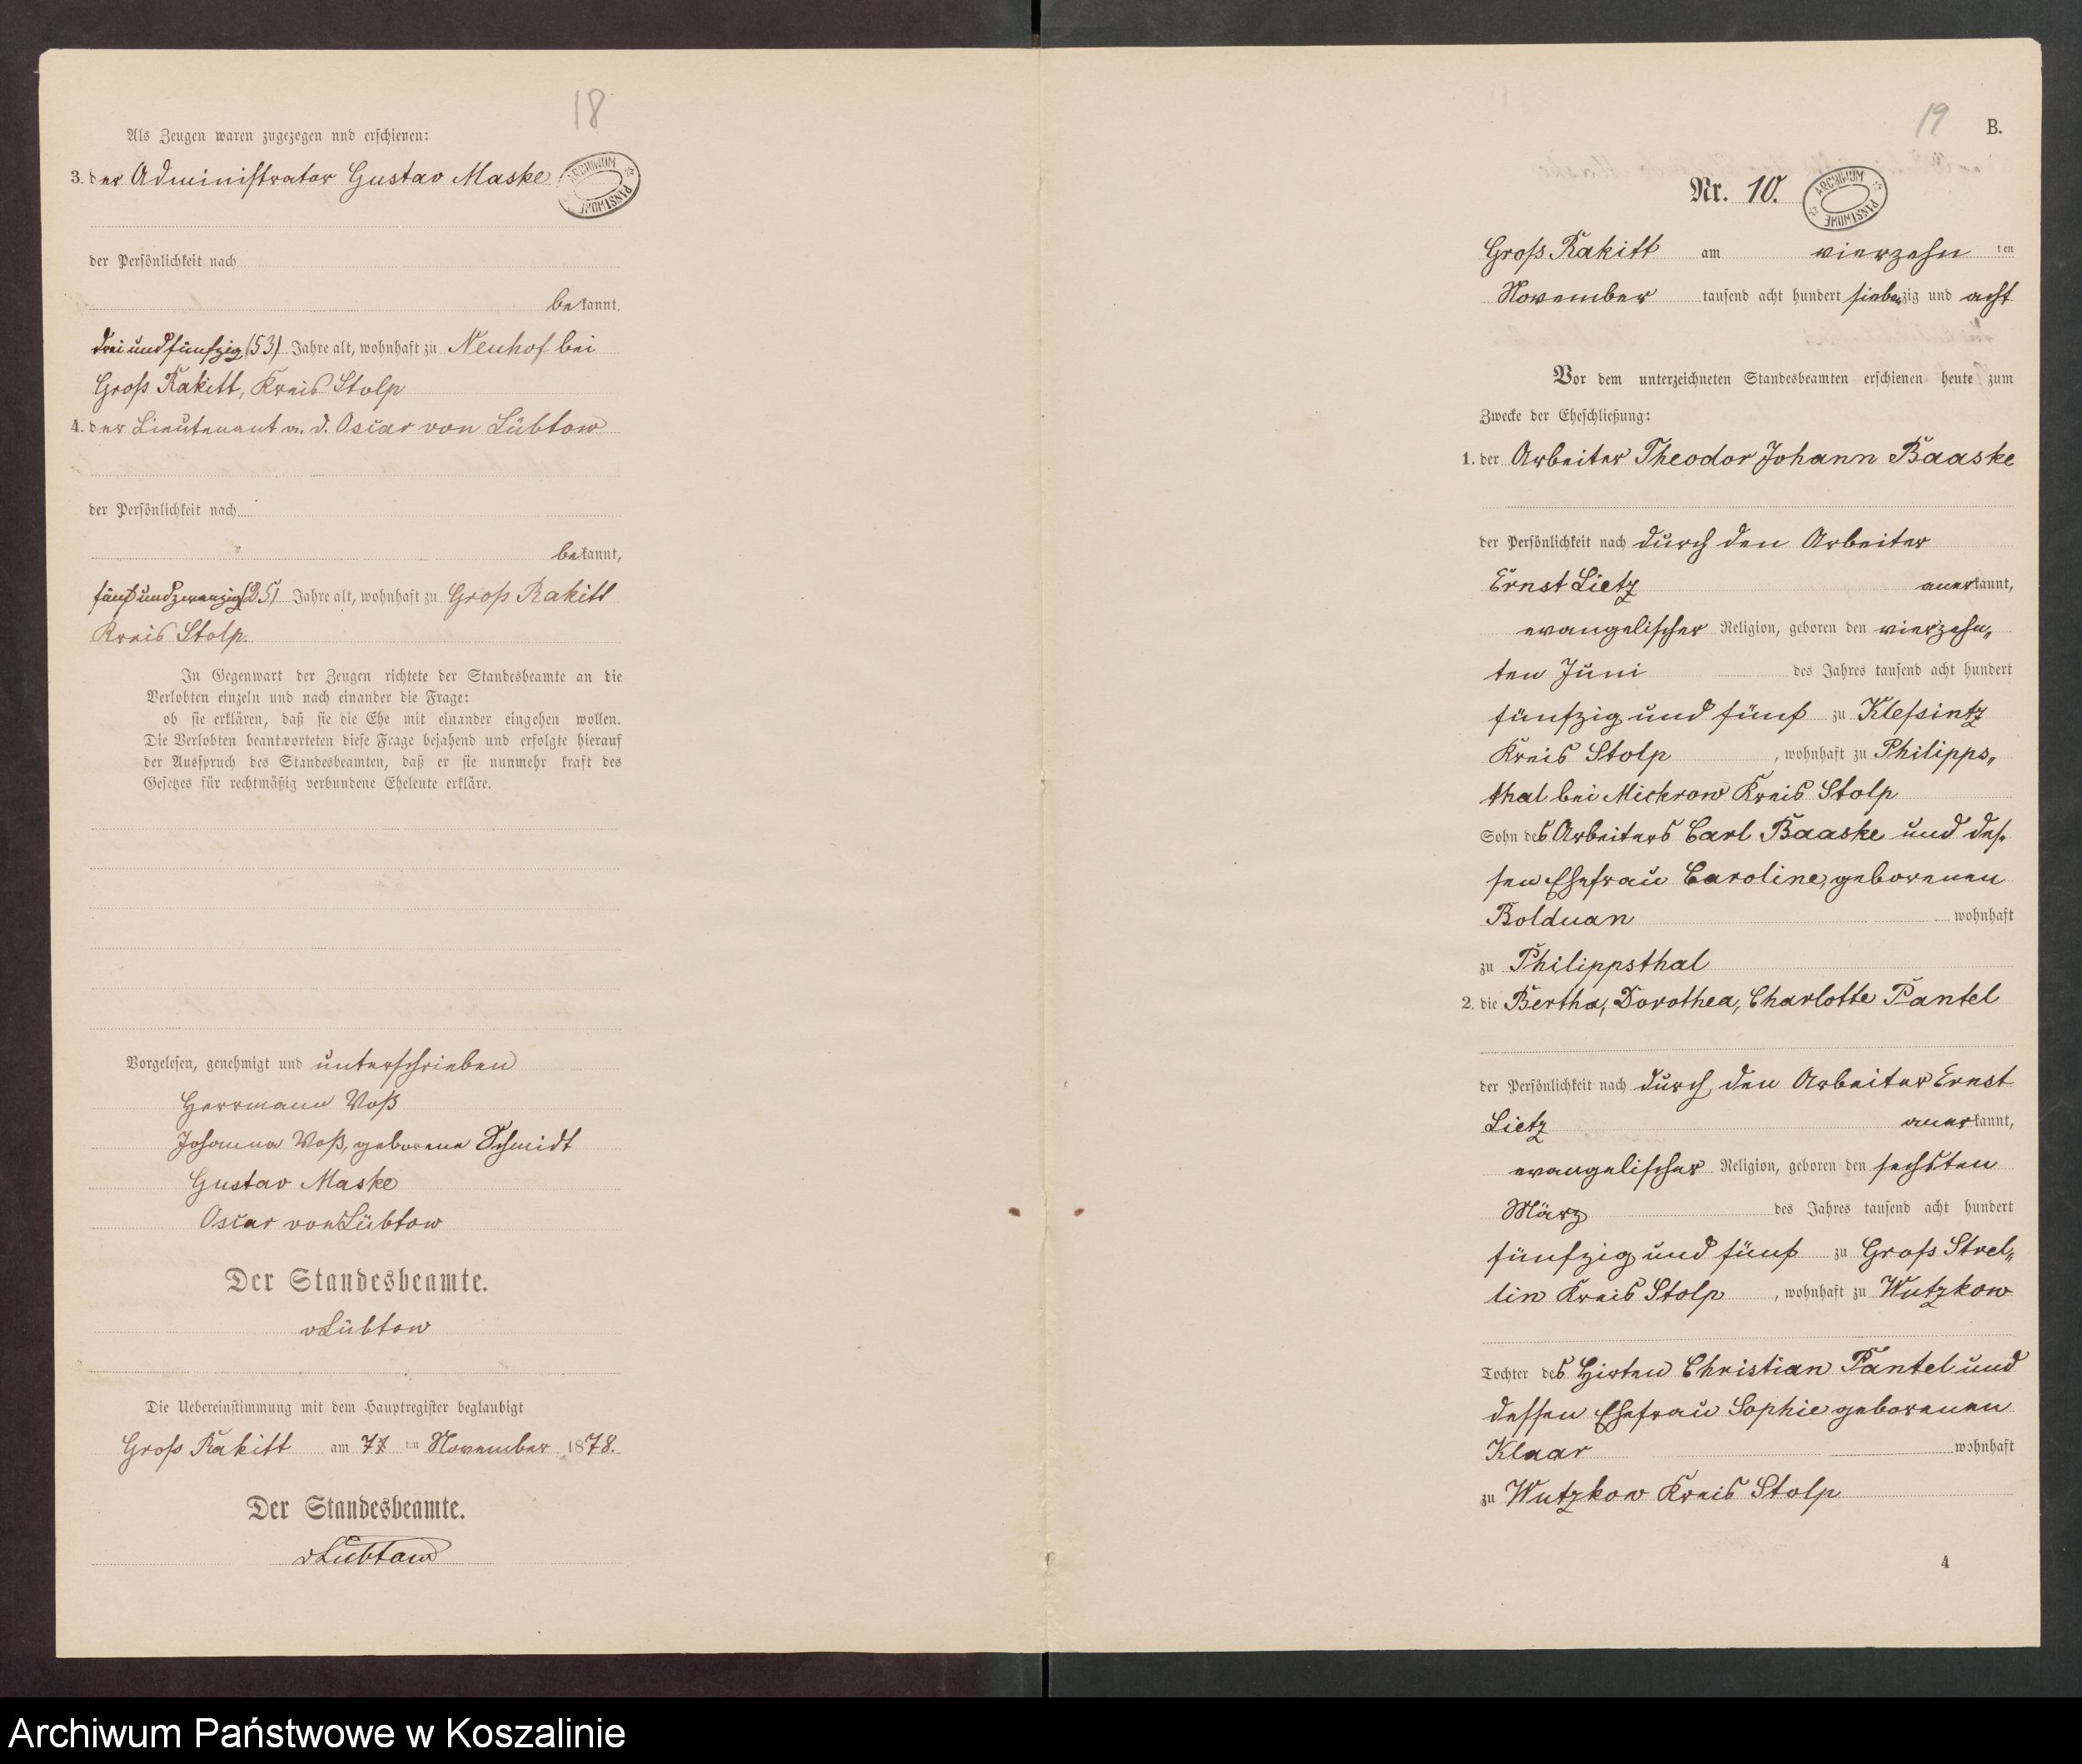 18
Als Zeugen waren zugezegen nnd erschienen:
3. der Administrator Gustav Maske
ARCHIWUM PAŃSTWOWE
der Persönlichkeit nach
bekannt,
drei und fünfzig (53) Jahre alt, wohnhaft zu Neuhof bei
Groß Rakitt, Kreis Stolp
4. der Lieutenant a. d. Oscar von Lübtow
der Persönlichkeit nach
bekannt,
fünf und zwanzig (25) Jahre alt, wohnhaft zu Groß Rakitt
Kreis Stolp.
In Gegenwart der Zeugen richtete der Standesbeamte an die
Verlobten einzeln und nach einander die Frage:
ob sie erklären, daß sie die Ehe mit einander eingehen wollen.
Die Verlobten beantworteten diese Frage bejahend und erfolgte hierauf
der Ausspruch des Standesbeamten, daß er sie nunmehr kraft des
Gesetzes für rechtmäßig verbundene Eheleute erkläre.
Vorgelesen, genehmigt und unterschrieben
Herrmann Voß
Johanna Voß, geborene Schmidt
Gustav Maske
Oscar von Lübtow
Der Standesbeamte.
vLübtow
Die Uebereinstimmung mit dem Hauptregister beglaubigt
Groß Rakitt am ten November 1878.
Der Standesbeamte.
vLübtow
19
B.
Nr. 10.
ARCHIWUM PAŃSTWOWE
Groß Rakitt am vierzehn ten
November tausend acht hundert siebenzig und acht
Vor dem unterzeichneten Standesbeamten erschienen heute zum
Zwecke der Eheschließung:
1. der Arbeiter Theodor Johann Baaske
der Persönlichkeit nach durch den Arbeiter
Ernst Lietz anerkannt,
evangelischer Religion, geboren den vierzehn„
ten Juni des Jahres tausend acht hundert
fünfzig und fünf zu Kleßintz
Kreis Stolp, wohnhaft zu Philipps„
thal bei Mickrow Kreis Stolp
Sohn des Arbeiters Carl Baaske und des„
sen Ehefrau Caroline, geborenen
Bolduan wohnhaft
zu Philippsthal
2. die Bertha, Dorothea, Charlotte Pantel
der Persönlichkeit nach durch den Arbeiter Ernst
Lietz anerkannt,
evangelischer Religion, geboren den sechsten
März des Jahres tausend acht hundert
fünfzig und fünf zu Groß Strel„
lin Kreis Stolp, wohnhaft zu Wutzkow
Tochter des Hirten Christian Pantel und
dessen Ehefrau Sophie geborenen
Klaar wohnhaft
zu Wutzkow Kreis Stolp
4
Archiwum Państwowe w Koszalinie